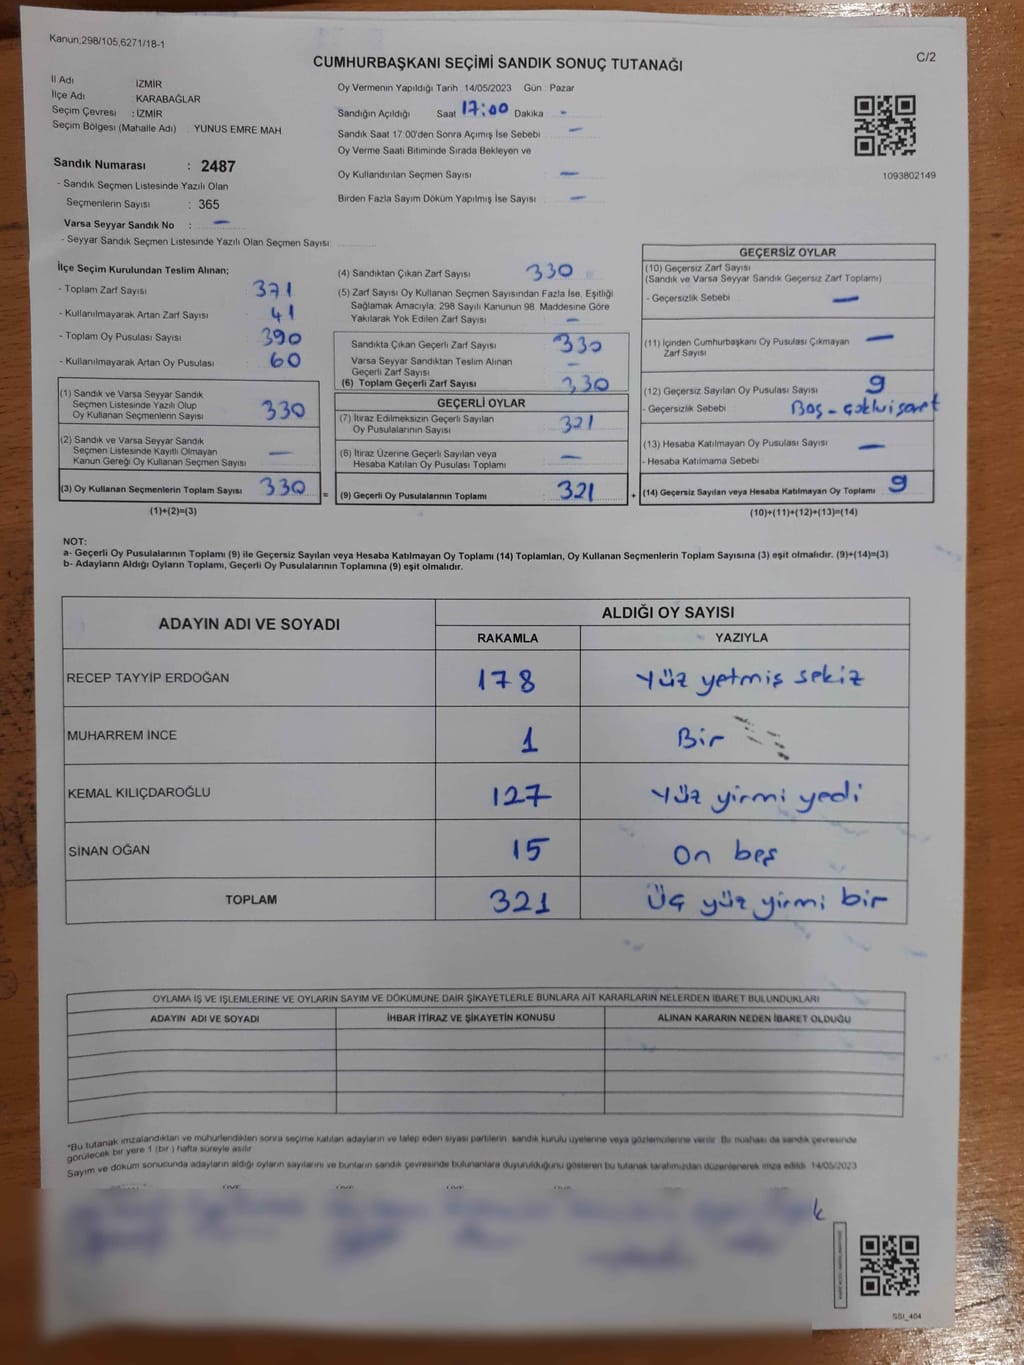 Kanun;298/105,6271/18-1
CUMHURBAŞKANI SEÇİMİ SANDIK SONUÇ TUTANAĞI
C/2
İl Adı İZMİR
İlçe Adı KARABAĞLAR
Seçim Çevresi : İZMİR
Seçim Bölgesi (Mahalle Adı) YUNUS EMRE MAH
Sandık Numarası : 2487
- Sandık Seçmen Listesinde Yazılı Olan
Seçmenlerin Sayısı : 365
Varsa Seyyar Sandık No : -
- Seyyar Sandık Seçmen Listesinde Yazılı Olan Seçmen Sayısı:
Oy Vermenin Yapıldığı Tarih 14/05/2023 Gün : Pazar
Sandığın Açıldığı Saat 17:00 Dakika -
Sandık Saat 17:00'den Sonra Açımış İse Sebebi -
Oy Verme Saati Bitiminde Sırada Bekleyen ve
Oy Kullandırılan Seçmen Sayısı -
Birden Fazla Sayım Döküm Yapılmış İse Sayısı -
1093802149
İlçe Seçim Kurulundan Teslim Alınan;
- Toplam Zarf Sayısı 371
- Kullanılmayarak Artan Zarf Sayısı 41
- Toplam Oy Pusulası Sayısı 390
- Kullanılmayarak Artan Oy Pusulası 60
(1) Sandık ve Varsa Seyyar Sandık
Seçmen Listesinde Yazılı Olup
Oy Kullanan Seçmenlerin Sayısı 330
(2) Sandık ve Varsa Seyyar Sandık
Seçmen Listesinde Kayıtlı Olmayan
Kanun Gereği Oy Kullanan Seçmen Sayısı -
(3) Oy Kullanan Seçmenlerin Toplam Sayısı 330
=
(1)+(2)=(3)
(4) Sandıktan Çıkan Zarf Sayısı 330
(5) Zarf Sayısı Oy Kullanan Seçmen Sayısından Fazla İse, Eşitliği
Sağlamak Amacıyla, 298 Sayılı Kanunun 98. Maddesine Göre
Yakılarak Yok Edilen Zarf Sayısı -
Sandıkta Çıkan Geçerli Zarf Sayısı 330
Varsa Seyyar Sandıktan Teslim Alınan
Geçerli Zarf Sayısı -
(6) Toplam Geçerli Zarf Sayısı 330
GEÇERLİ OYLAR
(7) İtiraz Edilmeksizin Geçerli Sayılan
Oy Pusulalarının Sayısı 321
(8) İtiraz Üzerine Geçerli Sayılan veya
Hesaba Katılan Oy Pusulası Toplamı -
(9) Geçerli Oy Pusulalarının Toplamı 321
+
GEÇERSİZ OYLAR
(10) Geçersiz Zarf Sayısı
(Sandık ve Varsa Seyyar Sandık Geçersiz Zarf Toplamı)
- Geçersizlik Sebebi -
(11) İçinden Cumhurbaşkanı Oy Pusulası Çıkmayan
Zarf Sayısı -
(12) Geçersiz Sayılan Oy Pusulası Sayısı 9
- Geçersizlik Sebebi Boş - çoklu işaret
(13) Hesaba Katılmayan Oy Pusulası Sayısı -
- Hesaba Katılmama Sebebi
(14) Geçersiz Sayılan veya Hesaba Katılmayan Oy Toplamı 9
(10)+(11)+(12)+(13)=(14)
NOT:
a- Geçerli Oy Pusulalarının Toplamı (9) ile Geçersiz Sayılan veya Hesaba Katılmayan Oy Toplamı (14) Toplamları, Oy Kullanan Seçmenlerin Toplam Sayısına (3) eşit olmalıdır. (9)+(14)=(3)
b- Adayların Aldığı Oyların Toplamı, Geçerli Oy Pusulalarının Toplamına (9) eşit olmalıdır.
ADAYIN ADI VE SOYADI
ALDIĞI OY SAYISI
RAKAMLA YAZIYLA
RECEP TAYYİP ERDOĞAN 178 Yüz yetmiş sekiz
MUHARREM İNCE 1 Bir
KEMAL KILIÇDAROĞLU 127 Yüz yirmi yedi
SİNAN OĞAN 15 On beş
TOPLAM 321 Üç yüz yirmi bir
OYLAMA İŞ VE İŞLEMLERİNE VE OYLARIN SAYIM VE DÖKÜMÜNE DAİR ŞİKAYETLERLE BUNLARA AİT KARARLARIN NELERDEN İBARET BULUNDUKLARI
ADAYIN ADI VE SOYADI İHBAR İTİRAZ VE ŞİKAYETİN KONUSU ALINAN KARARIN NEDEN İBARET OLDUĞU
*Bu tutanak imzalandıktan ve mühürlendikten sonra seçime katılan adayların ve talep eden siyasi partilerin sandık kurulu üyelerine veya gözlemcilerine verilir. Bir nüshası da sandık çevresinde
görülecek bir yere 1 (bir) hafta süreyle asılır.
Sayım ve döküm sonucunda adayların aldığı oyların sayılarını ve bunların sandık çevresinde bulunanlara duyurulduğunu gösteren bu tutanak tarafımızdan düzenlenerek imza edildi. 14/05/2023
SSI_404